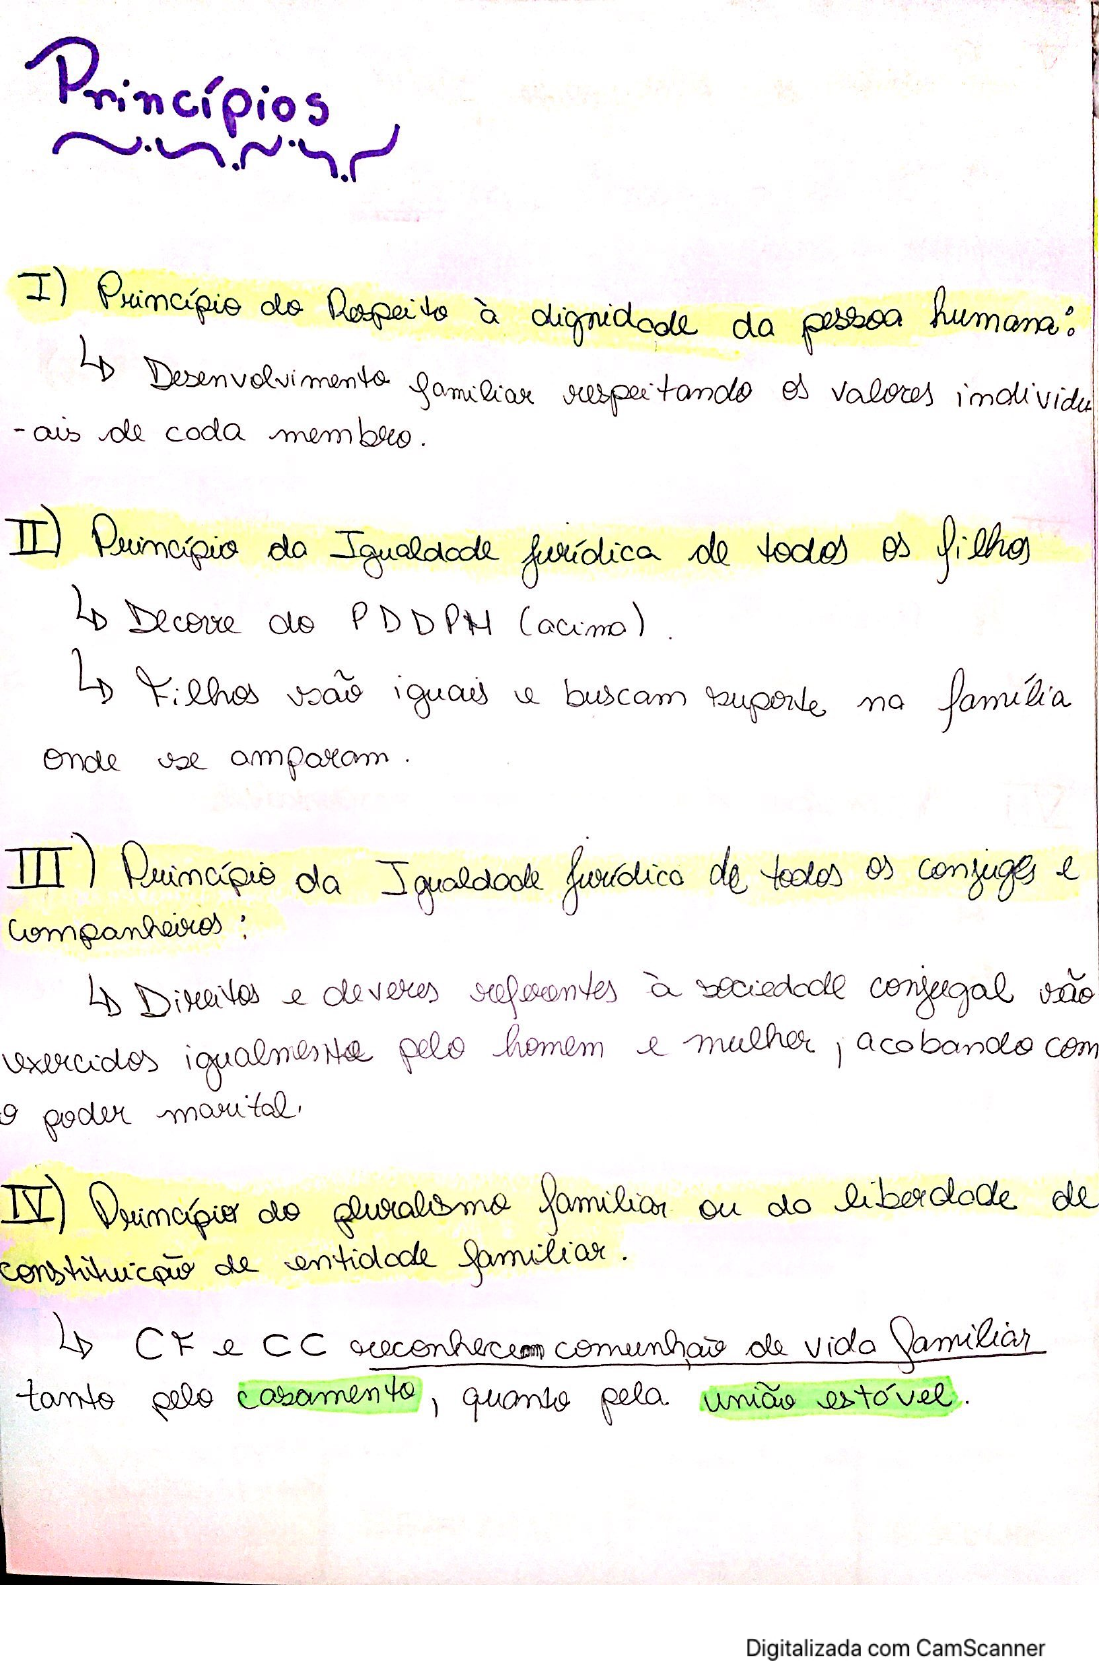 Princípios
I) Princípio do Respeito à dignidade da pessoa humana:
↳ Desenvolvimento familiar respeitando os valores individu
-ais de cada membro.
II) Princípio da Igualdade jurídica de todos os filhos
↳ Decorre do PDDPH (acima).
↳ Filhos são iguais e buscam suporte na família
onde se amparam.
III) Princípio da Igualdade jurídica de todos os conjuges e
companheiros:
↳ Direitos e deveres referentes à sociedade conjugal são
exercidos igualmente pelo homem e mulher, acabando com
o poder marital.
IV) Princípio do pluralismo familiar ou da liberdade de
constituição de entidade familiar.
↳ CF e CC reconhecem comunhão de vida familiar
tanto pelo casamento, quanto pela união estável.
Digitalizada com CamScanner